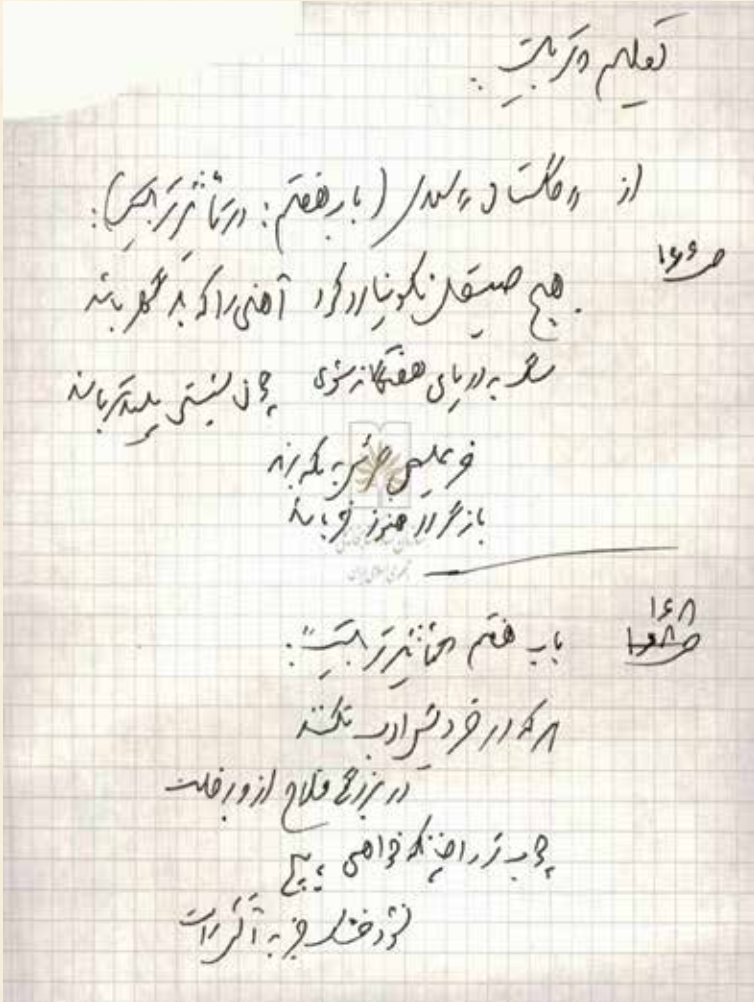 تعلیم و تربیت:
از «گلستان» سعدی (باب هفتم: در تأثیر تربیت):
ص ۱۶۶
هیچ صیقل نکو نیارد کرد آهنی را که بد گهر باشد
سگ به دریای هفتگانه بشوی چون بشستی پلیدتر باشد
خر عیسی گرش به مکه برند
باز گردد هنوز خر باشد
سازمان اسناد و کتابخانه ملی
جمهوری اسلامی ایران
۱۶۸
ص
باب هفتم «تأثیر تربیت»:
هر که در خردیش ادب نکنند
در بزرگی فلاح از و برخاست
چوب تر را چنانکه خواهی پیچ
نشود خشک جز به آتش راست